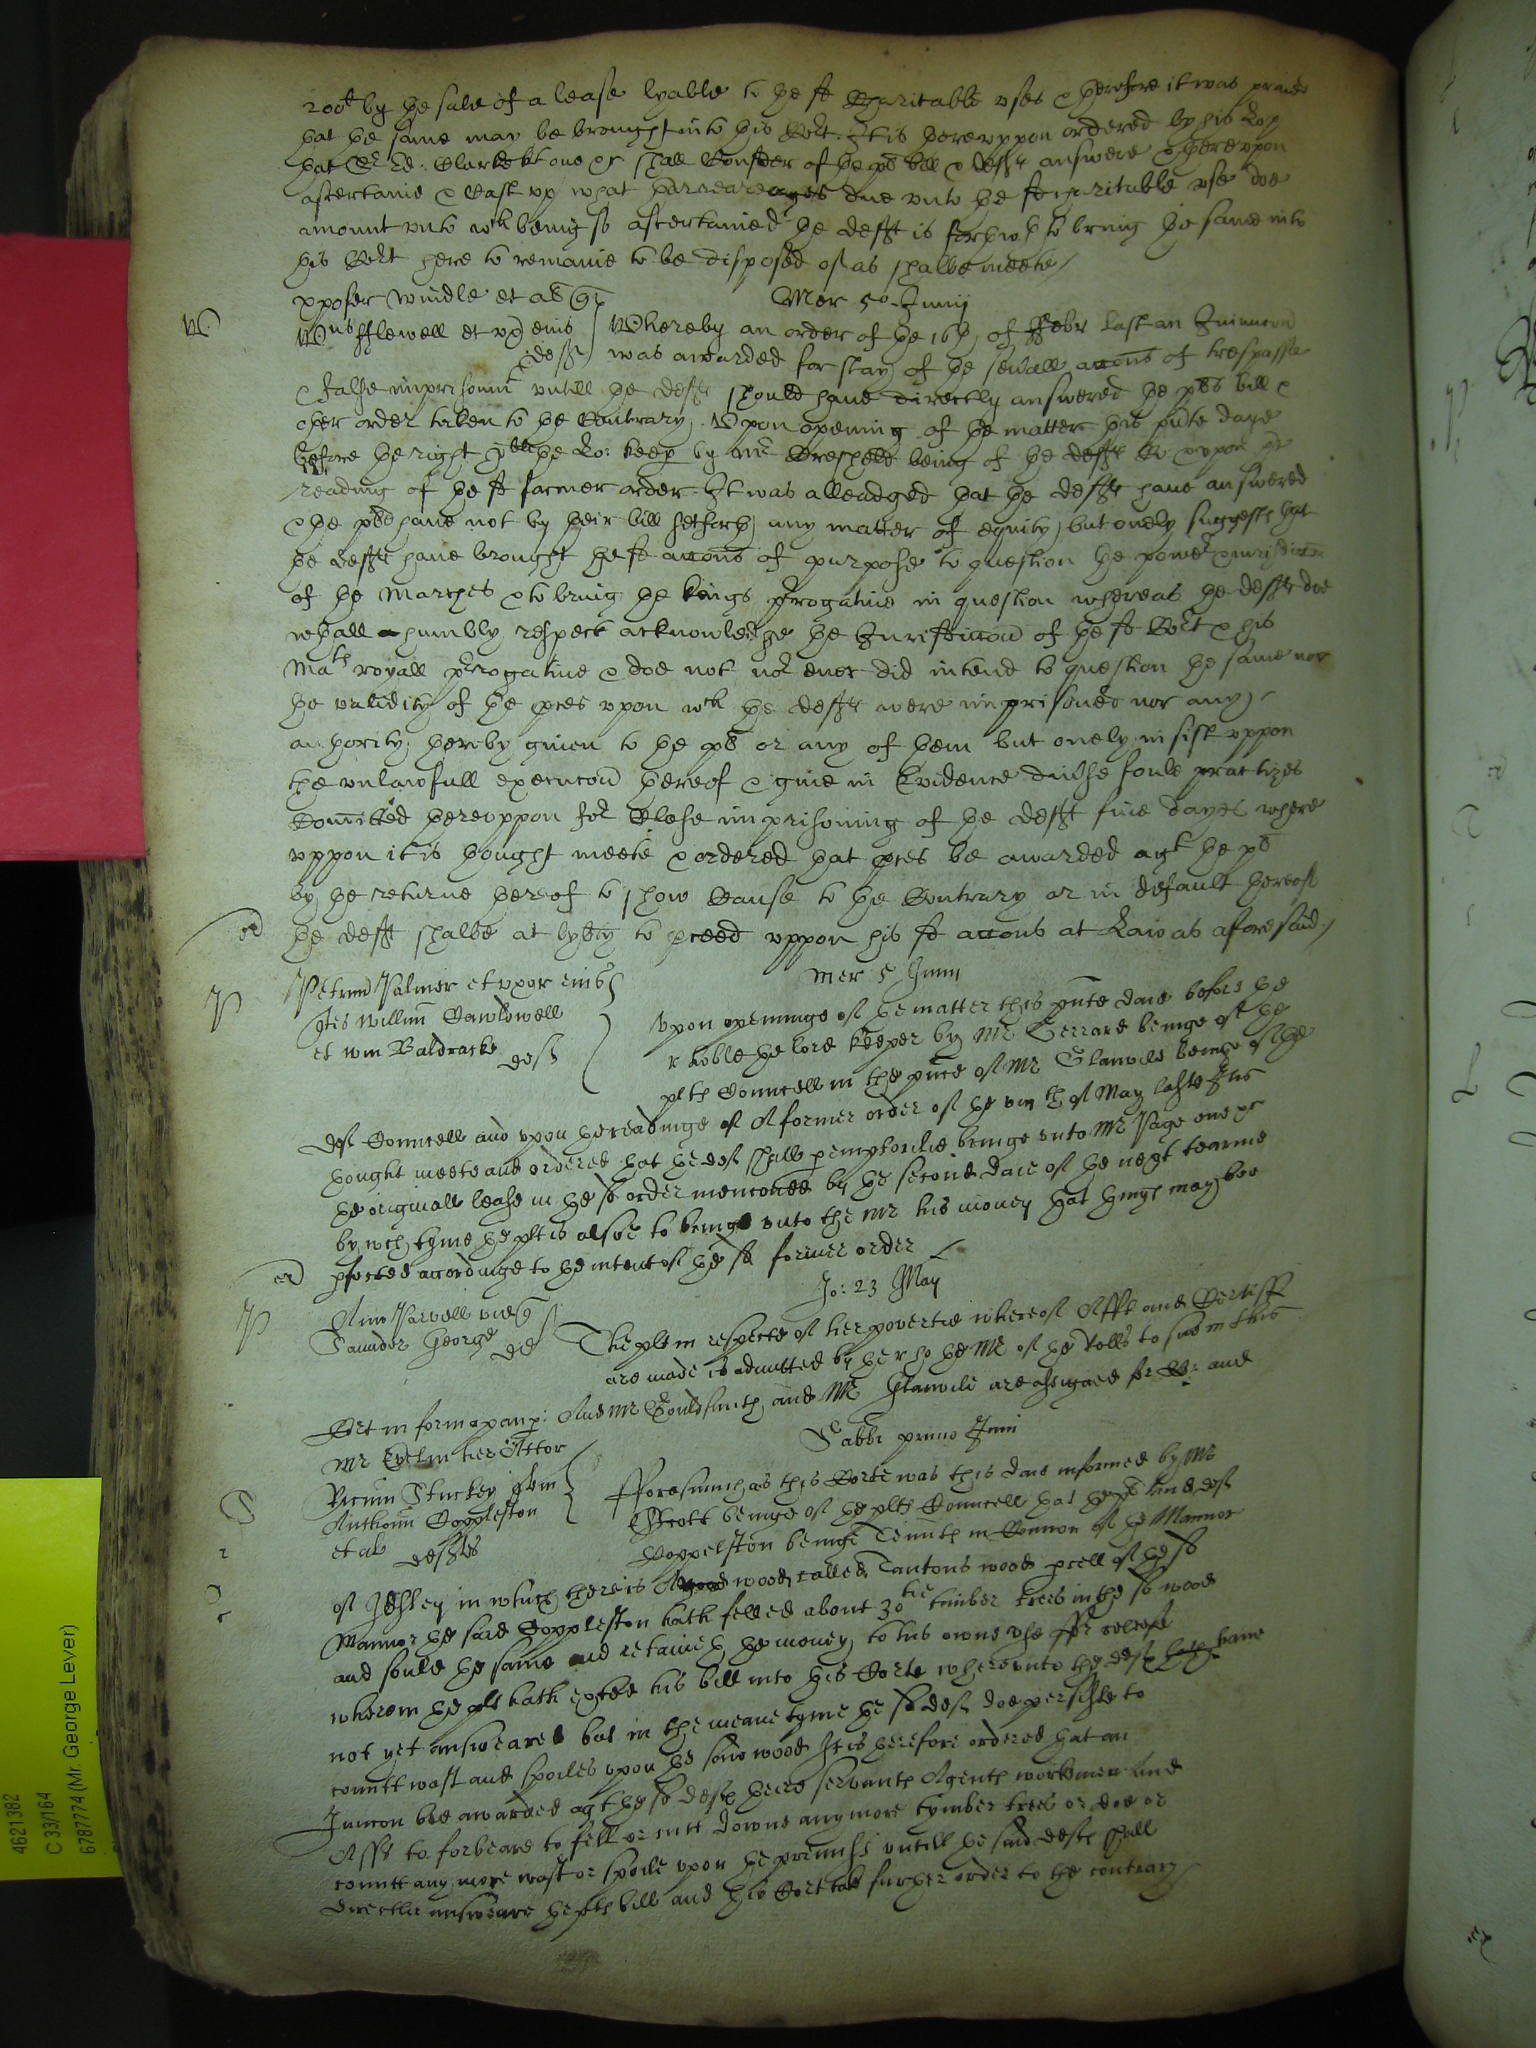 200li by the sale of a lease lyable to the sd Charitable vses & therefore it was praied
that the same may be brought into this Cort. It is herevppon ordered by his Lop
that Sr Ed: Clarke kt one &c shall Consider of the pls bill & defts answere & therevpon
ascertaine & Cast vp what tharreareages due vnto the sd charitable vse doe
amount vnto wch being so ascertained the defft is forthwth to bring the same into
this Cort here to remaine to be disposed of as shalbe meete /
xpofer Windle et al quer Mer 5o Junij
fflewell et ux eius deffts Whereby an order of the 16th of ffebr last an Iniunccon
was awarded for stay of the seuall accons of trespasse
& false imprisonmt vntill the deffts should haue directly answered the pls bill &
other order taken to the Contrary. Vpon opening of the matter this pnte daye
before the right hble the Lo: keep by Mr being of the deffts Co: & vpon the
reading of the sd former order. It was alleadged that the deffts haue answered
& the pls haue not by their bill setforth any matter of equity, but onely suggests that
the deffts haue brought the sd accons of purpose to question the power & iurisdiccon
of the Marches & to bring the kings prrogatiue in question whereas the deffts doe
wth all humbly respect acknowledge the Jurisdiccon of the sd Cort & his
Mats royall prrogatiue & doe not nor euer did intend to question the same nor
the validity of the pces vpon wch the deffts were imprisoned nor any
authority thereby giuen to the pls or any of them but onely insist vppon
the vnlawfull execucon thereof & giue in Evidence diuerse foule practizes
Comitted therevppon for Close imprisoning of the defft fiue dayes where
vppon it is thought meete & ordered that pces be awarded agt the pls
by the returne thereof to show Cause to the Contrary or in default thereof
the defft shalbe at lybty to pceed vppon his sd accons at Law as aforesaid /
Petrum Palmer et vxor eius Mer 5 Junii
qtes Willim Cawldwell
et wm Baldracke deft
Vpon openinge of the matter this pnte daie before the
r hoble the lord keeper by Mr Gerrard beinge of the
plts Councell in the pnce of Mr Glanvile beinge of the
deft Councell and vpon the readinge of A former order of the viiith of May laste It is
thought meete and ordered that the deft shall peremptorilie bringe vnto Mr Page one &c
the originall lease in the sd order menconed by the second daie of the next tearme
by wch tyme the plt is alsoe to bringe vnto the Mr his money that things may bee
pfected accordinge to the intent of the sd former order
Jo: 23 May
Ann Parvell vid q
Saunder George de
The plt in respecte of her povertie whereof Afft and Certiff
are made is admitted by the r ho the Mr of the Rolls to sue in this
Cort in forma paup: And Mr Gouldsmith and Mr Glanvile are assigned for Co: and
Mr Evelin her Attor Sabbi primo Junii
Stuckey quer
Anthonii Coppleston
et al deftes
Fforasmuch as this Corte was this daie informed by Mr
Escott beinge of the plts Councell that the plt and deft
Coppelston beinge Tennts in Common of the Mannor
of in which there is A wood called Tantons wood pcell of the sd
Mannor the said Coppleston hath felled about 30tie timber trees in the sd wood
and sould the same and retaineth the money to his owne vse ffor releefe
wherein the plt hath exhted his bill into this Corte wherevnto the deft hath haue
not yet answeared but in the meane tyme the sd deft doe persiste to
comitt wast and spoiles vpon the said wood It is therefore ordered that an
Iniuncon bee awarded agt the sd defts their servants Agents workmen and
Asss to forbeare to fell or cutt downe any more tymber trees or doe or
comitt any more wast or spoile vpon the premiss vntill the said defts shall
directlie answeare the plts bill and this Cort take further order to the contrary
4621382
C 33/164
6787774 (Mr. George Lever)